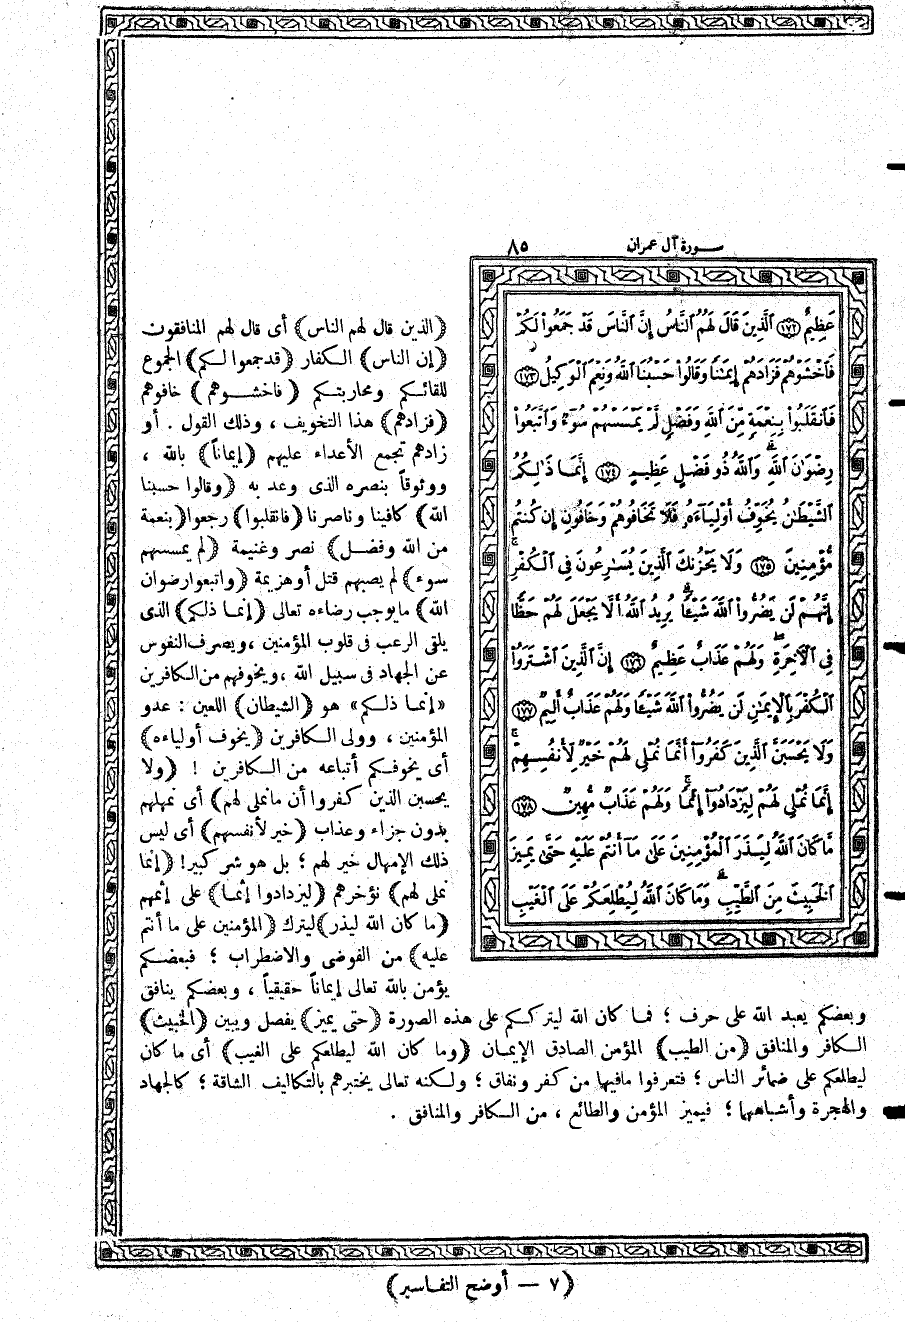 سورة آل عمران ٨٥
عَظِيمٌ ﴿١٧٢﴾ ٱلَّذِينَ قَالَ لَهُمُ ٱلنَّاسُ إِنَّ ٱلنَّاسَ قَدْ جَمَعُوا۟ لَكُمْ
فَٱخْشَوْهُمْ فَزَادَهُمْ إِيمَـٰنًا وَقَالُوا۟ حَسْبُنَا ٱللَّهُ وَنِعْمَ ٱلْوَكِيلُ ﴿١٧٣﴾
فَٱنقَلَبُوا۟ بِنِعْمَةٍ مِّنَ ٱللَّهِ وَفَضْلٍ لَّمْ يَمْسَسْهُمْ سُوٓءٌ وَٱتَّبَعُوا۟
رِضْوَٰنَ ٱللَّهِ وَٱللَّهُ ذُو فَضْلٍ عَظِيمٍ ﴿١٧٤﴾ إِنَّمَا ذَٰلِكُمُ
ٱلشَّيْطَـٰنُ يُخَوِّفُ أَوْلِيَآءَهُۥ فَلَا تَخَافُوهُمْ وَخَافُونِ إِن كُنتُم
مُّؤْمِنِينَ ﴿١٧٥﴾ وَلَا يَحْزُنكَ ٱلَّذِينَ يُسَـٰرِعُونَ فِى ٱلْكُفْرِ
إِنَّهُمْ لَن يَضُرُّوا۟ ٱللَّهَ شَيْـًٔا يُرِيدُ ٱللَّهُ أَلَّا يَجْعَلَ لَهُمْ حَظًّا
فِى ٱلْـَٔاخِرَةِ وَلَهُمْ عَذَابٌ عَظِيمٌ ﴿١٧٦﴾ إِنَّ ٱلَّذِينَ ٱشْتَرَوُا۟
ٱلْكُفْرَ بِٱلْإِيمَـٰنِ لَن يَضُرُّوا۟ ٱللَّهَ شَيْـًٔا وَلَهُمْ عَذَابٌ أَلِيمٌ ﴿١٧٧﴾
وَلَا يَحْسَبَنَّ ٱلَّذِينَ كَفَرُوٓا۟ أَنَّمَا نُمْلِى لَهُمْ خَيْرٌ لِّأَنفُسِهِمْ
إِنَّمَا نُمْلِى لَهُمْ لِيَزْدَادُوٓا۟ إِثْمًا وَلَهُمْ عَذَابٌ مُّهِينٌ ﴿١٧٨﴾
مَّا كَانَ ٱللَّهُ لِيَذَرَ ٱلْمُؤْمِنِينَ عَلَىٰ مَآ أَنتُمْ عَلَيْهِ حَتَّىٰ يَمِيزَ
ٱلْخَبِيثَ مِنَ ٱلطَّيِّبِ وَمَا كَانَ ٱللَّهُ لِيُطْلِعَكُمْ عَلَى ٱلْغَيْبِ
(الذين قال لهم الناس) أى قال لهم المنافقون
(إن الناس) الكفار (قد جمعوا لكم) الجموع
للقائكم ومحاربتكم (فاخشوهم) خافوهم
(فزادهم) هذا التخويف ، وذلك القول . أو
زادهم تجمع الأعداء عليهم (إيماناً) بالله ،
ووثوقاً بنصره الذى وعد به (وقالوا حسبنا
الله) كافينا وناصرنا (فانقلبوا) رجعوا (بنعمة
من الله وفضل) نصر وغنيمة (لم يمسسهم
سوء) لم يصبهم قتل أو هزيمة (واتبعوا رضوان
الله) ما يوجب رضاءه تعالى (إنما ذلكم) الذى
يلقى الرعب فى قلوب المؤمنين ، ويصرف النفوس
عن الجهاد فى سبيل الله ، ويخوفهم من الكافرين
«إنما ذلكم» هو (الشيطان) اللعين : عدو
المؤمنين ، وولى الكافرين (يخوف أولياءه)
أى يخوفكم أتباعه من الكافرين ! (ولا
يحسبن الذين كفروا أن ما نملى لهم) أى نمهلهم
بدون جزاء وعذاب (خير لأنفسهم) أى ليس
ذلك الإمهال خير لهم ؛ بل هو شر كبير! (إنما
نملى لهم) نؤخرهم (ليزدادوا إثما) على إثمهم
(ما كان الله ليذر) ليترك (المؤمنين على ما أنتم
عليه) من الفوضى والاضطراب ؛ فبعضكم
يؤمن بالله تعالى إيماناً حقيقياً ، وبعضكم ينافق
وبعضكم يعبد الله على حرف ؛ فما كان الله ليترككم على هذه الصورة (حتى يميز) يفصل ويبين (الخبيث)
الكافر والمنافق (من الطيب) المؤمن الصادق الإيمان (وما كان الله ليطلعكم على الغيب) أى ما كان
ليطلعكم على ضمائر الناس ؛ فتعرفوا مافيها من كفر ونفاق ؛ ولكنه تعالى يختبرهم بالتكاليف الشاقة ؛ كالجهاد
والهجرة وأشباهها ؛ فيميز المؤمن والطائع ، من الكافر والمنافق .
(٧ — أوضح التفاسير)